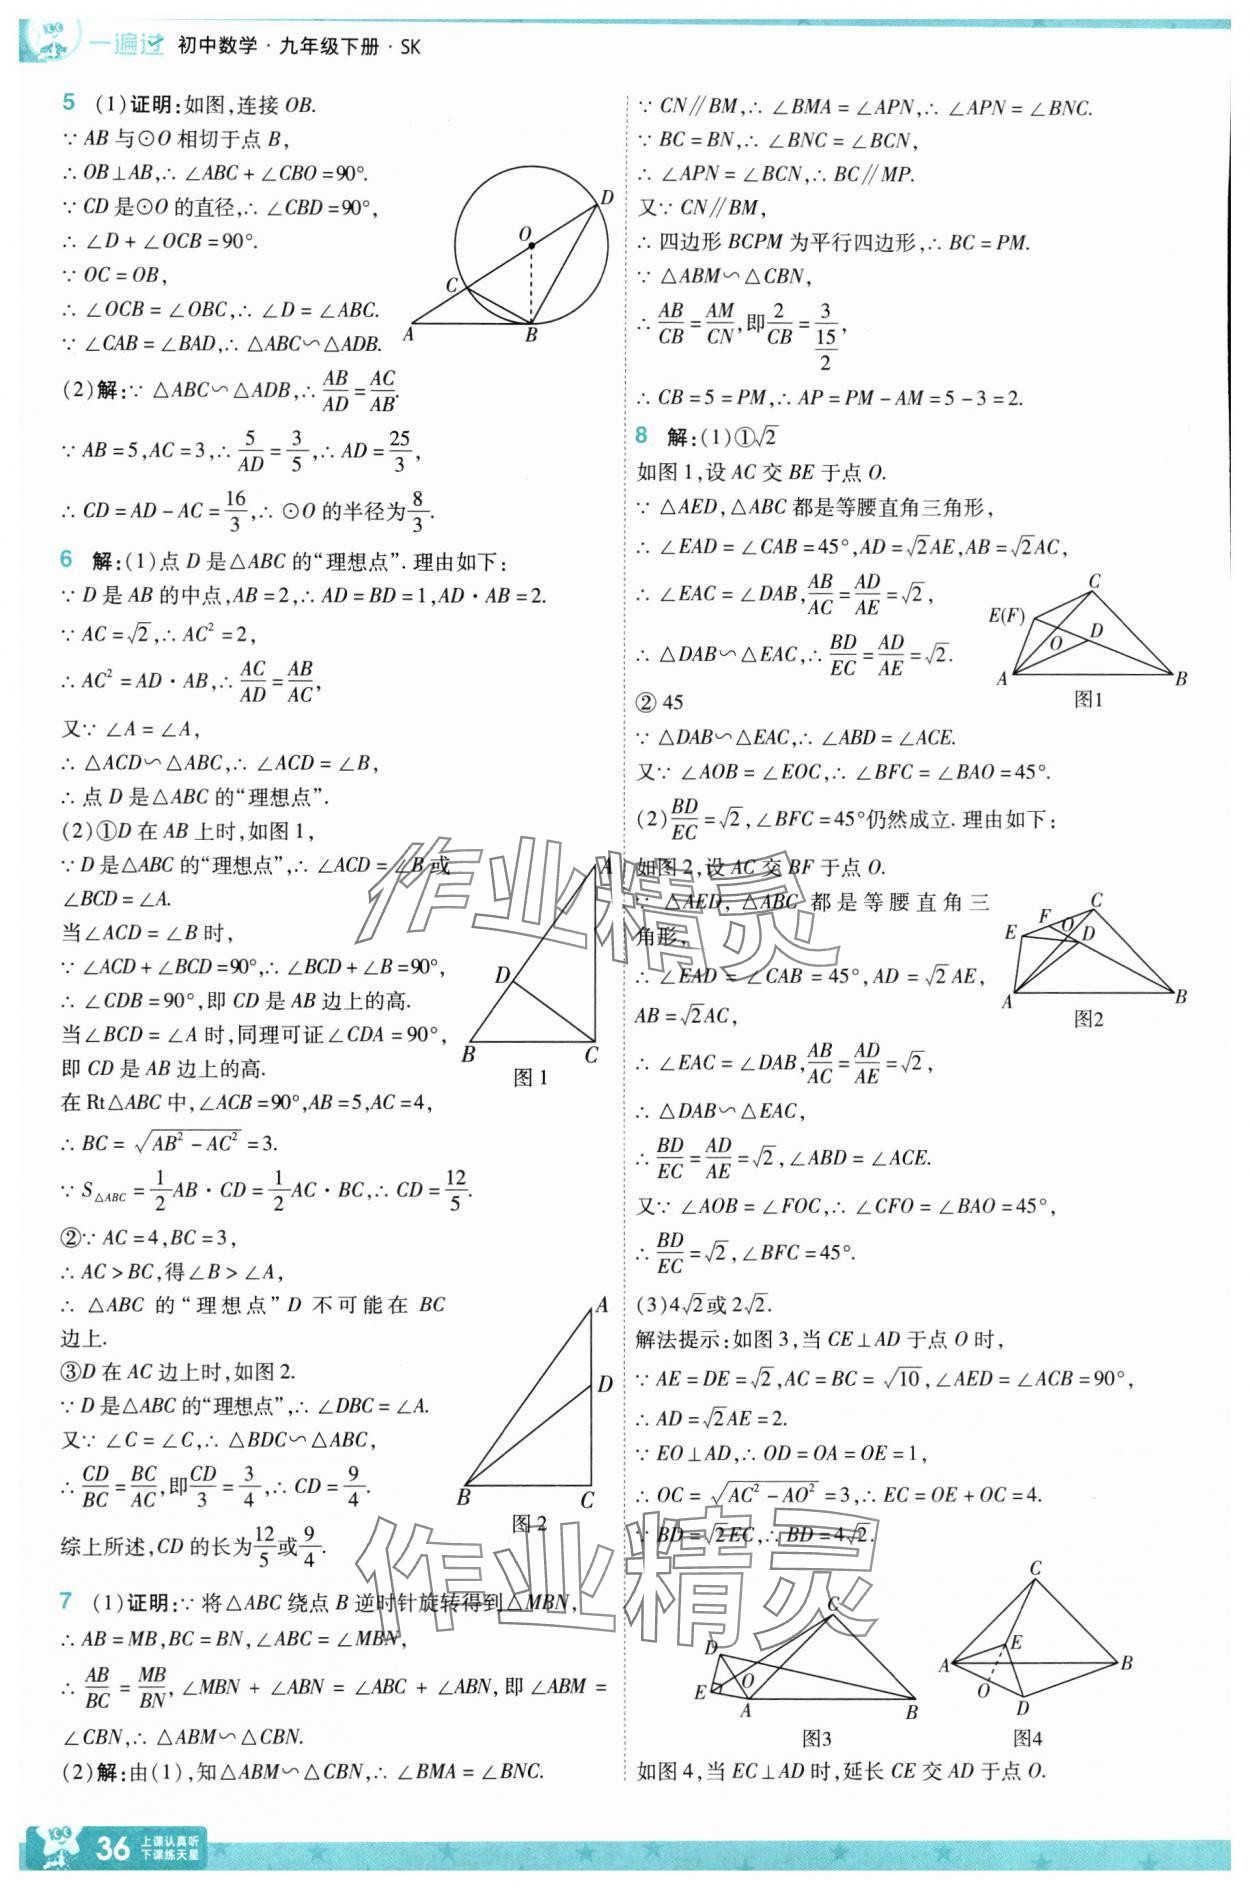 一遍过 初中数学·九年级下册·SK
5 (1)证明:如图,连接 OB.
∵ AB 与⊙O 相切于点 B,
∴ OB⊥AB,∴ ∠ABC + ∠CBO = 90°.
∵ CD 是⊙O 的直径,∴ ∠CBD = 90°,
∴ ∠D + ∠OCB = 90°.
∵ OC = OB,
∴ ∠OCB = ∠OBC,∴ ∠D = ∠ABC.
∵ ∠CAB = ∠BAD,∴ △ABC∽△ADB.
D
O
C
A
B
(2)解:∵ △ABC∽△ADB,∴ AB/AD = AC/AB.
∵ AB = 5,AC = 3,∴ 5/AD = 3/5,∴ AD = 25/3,
∴ CD = AD − AC = 16/3,∴ ⊙O 的半径为 8/3.
6 解:(1)点 D 是△ABC 的“理想点”. 理由如下:
∵ D 是 AB 的中点,AB = 2,∴ AD = BD = 1,AD·AB = 2.
∵ AC = √2,∴ AC² = 2,
∴ AC² = AD·AB,∴ AC/AD = AB/AC,
又∵ ∠A = ∠A,
∴ △ACD∽△ABC,∴ ∠ACD = ∠B,
∴ 点 D 是△ABC 的“理想点”.
(2)①D 在 AB 上时,如图 1,
∵ D 是△ABC 的“理想点”,∴ ∠ACD = ∠B 或
∠BCD = ∠A.
当∠ACD = ∠B 时,
∵ ∠ACD + ∠BCD = 90°,∴ ∠BCD + ∠B = 90°,
∴ ∠CDB = 90°,即 CD 是 AB 边上的高.
当∠BCD = ∠A 时,同理可证∠CDA = 90°,
即 CD 是 AB 边上的高.
A
D
B
C
图 1
在 Rt△ABC 中,∠ACB = 90°,AB = 5,AC = 4,
∴ BC = √(AB² − AC²) = 3.
∵ S△ABC = 1/2 AB·CD = 1/2 AC·BC,∴ CD = 12/5.
②∵ AC = 4,BC = 3,
∴ AC > BC,得∠B > ∠A,
∴ △ABC 的“理想点” D 不可能在 BC
边上.
③D 在 AC 边上时,如图 2.
∵ D 是△ABC 的“理想点”,∴ ∠DBC = ∠A.
又∵ ∠C = ∠C,∴ △BDC∽△ABC,
∴ CD/BC = BC/AC,即 CD/3 = 3/4,∴ CD = 9/4.
A
D
B
C
图 2
综上所述,CD 的长为 12/5 或 9/4.
7 (1)证明:∵ 将△ABC 绕点 B 逆时针旋转得到△MBN,
∴ AB = MB,BC = BN,∠ABC = ∠MBN,
∴ AB/BC = MB/BN,∠MBN + ∠ABN = ∠ABC + ∠ABN,即 ∠ABM =
∠CBN,∴ △ABM∽△CBN.
(2)解:由(1),知△ABM∽△CBN,∴ ∠BMA = ∠BNC.
∵ CN∥BM,∴ ∠BMA = ∠APN,∴ ∠APN = ∠BNC.
∵ BC = BN,∴ ∠BNC = ∠BCN,
∴ ∠APN = ∠BCN,∴ BC∥MP.
又∵ CN∥BM,
∴ 四边形 BCPM 为平行四边形,∴ BC = PM.
∵ △ABM∽△CBN,
∴ AB/CB = AM/CN,即 2/CB = 3/(15/2),
∴ CB = 5 = PM,∴ AP = PM − AM = 5 − 3 = 2.
8 解:(1)①√2
如图 1,设 AC 交 BE 于点 O.
∵ △AED,△ABC 都是等腰直角三角形,
∴ ∠EAD = ∠CAB = 45°,AD = √2AE,AB = √2AC,
∴ ∠EAC = ∠DAB,AB/AC = AD/AE = √2,
∴ △DAB∽△EAC,∴ BD/EC = AD/AE = √2.
C
E(F)
O
D
A
B
图1
② 45
∵ △DAB∽△EAC,∴ ∠ABD = ∠ACE.
又∵ ∠AOB = ∠EOC,∴ ∠BFC = ∠BAO = 45°.
(2) BD/EC = √2,∠BFC = 45°仍然成立. 理由如下:
如图 2,设 AC 交 BF 于点 O.
∵ △AED, △ABC 都是等腰直角三
角形,
∴ ∠EAD = ∠CAB = 45°,AD = √2AE,
AB = √2AC,
C
F
O
E
D
A
B
图2
∴ ∠EAC = ∠DAB,AB/AC = AD/AE = √2,
∴ △DAB∽△EAC,
∴ BD/EC = AD/AE = √2,∠ABD = ∠ACE.
又∵ ∠AOB = ∠FOC,∴ ∠CFO = ∠BAO = 45°,
∴ BD/EC = √2,∠BFC = 45°.
(3)4√2或 2√2.
解法提示:如图 3,当 CE⊥AD 于点 O 时,
∵ AE = DE = √2,AC = BC = √10,∠AED = ∠ACB = 90°,
∴ AD = √2AE = 2.
∵ EO⊥AD,∴ OD = OA = OE = 1,
∴ OC = √(AC² − AO²) = 3,∴ EC = OE + OC = 4.
∵ BD = √2EC,∴ BD = 4√2.
C
D
O
E
A
B
图3
C
E
A
B
O
D
图4
如图 4,当 EC⊥AD 时,延长 CE 交 AD 于点 O.
作业精灵
作业精灵
36 上课认真听
下课练天星